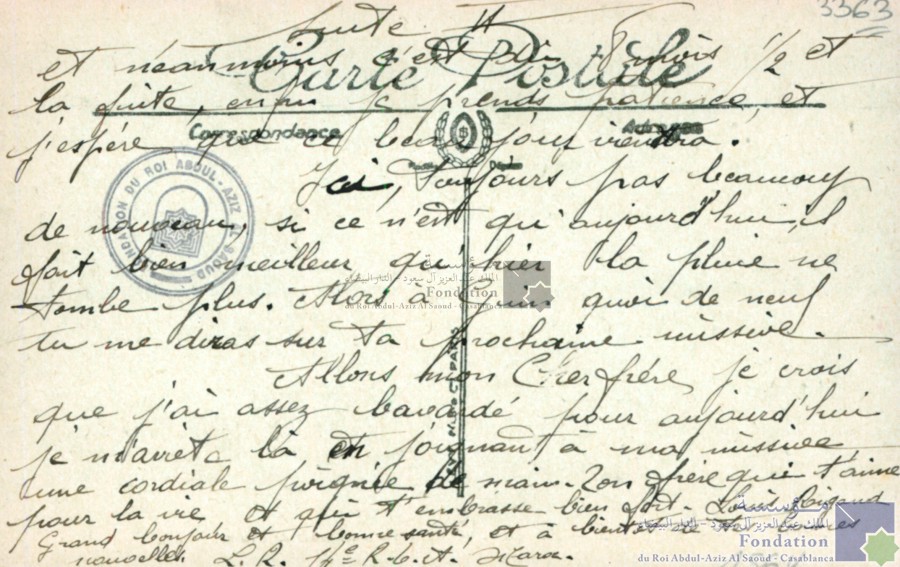 3363
Suite II
et néanmoins c'est 8 mois 1/2 et
Carte Postale
la suite, enfin je prends patience, et
Correspondance Adresse
j'espère que ce beau jour viendra.
Ici, toujours pas beaucoup
de nouveau, si ce n'est qu'aujourd'hui, il
fait bien meilleur qu'hier la pluie ne
tombe plus. Alors à quoi de neuf
tu me diras sur ta prochaine missive.
Allons mon Cher frère, je crois
que j'ai assez bavardé pour aujourd'hui
je m'arrête là en joignant à ma missive
une cordiale poignée de main. Ton frère qui t'aime
pour la vie et qui t'embrasse bien fort Louis
Grand bonjour et bonne santé, et à bientôt de
nouvelles L. R. R.I.C.M. Maroc.
FONDATION DU ROI ABDUL-AZIZ AL SAOUD
مؤسسة
الملك عبد العزيز آل سعود - الدار البيضاء
Fondation
du Roi Abdul-Aziz Al Saoud - Casablanca
مؤسسة
الملك عبد العزيز آل سعود - الدار البيضاء
Fondation
du Roi Abdul-Aziz Al Saoud - Casablanca